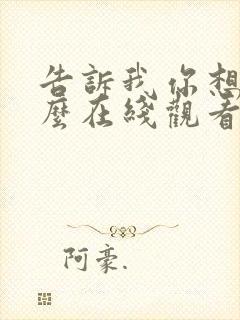 告訴我你想
麼在綫觀看
阿豪.